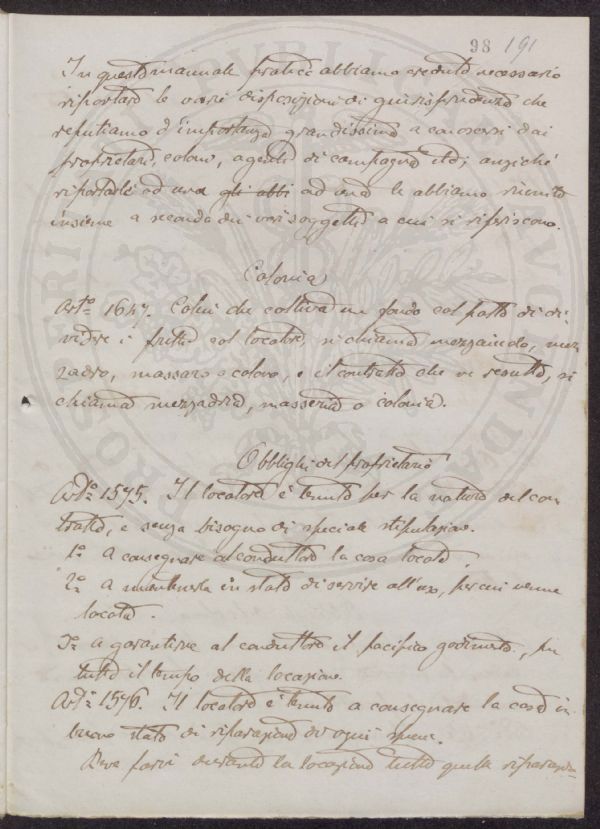 98 191
In questo manuale pratico abbiamo creduto necessario
riportare le varie disposizioni di giurisprudenza che
reputiamo d'importanza grandissima a conoscersi dai
proprietari, coloni, agenti di campagna etc; anziché
riportarle ad una gli abbi ad una le abbiamo riunite
insieme a seconda dei vari soggetti a cui si riferiscono.
Colonia
Art.º 1647. Colui che coltiva un fondo col patto di di-
videre i frutti col locatore, si chiama mezzaiuolo, mez
zadro, massaro o colono, e il contratto che ne resulta, si
chiama mezzadria, masseria o colonia.
Obblighi del proprietario
Art.º 1575. Il locatore è tenuto per la natura del con
tratto, e senza bisogno di speciale stipulazione.
1º a consegnare al conduttore la cosa locata.
2º a mantenerla in stato di servire all'uso, per cui venne
locata.
3º a garantirne al conduttore il pacifico godimento, per
tutto il tempo della locazione.
Art.º 1576. Il locatore è tenuto a consegnare la cosa in
buono stato di riparazione di ogni specie.
Deve farvi durante la locazione tutte quelle riparazio
PROSPERITATI PUBLICAE AUGENDAE